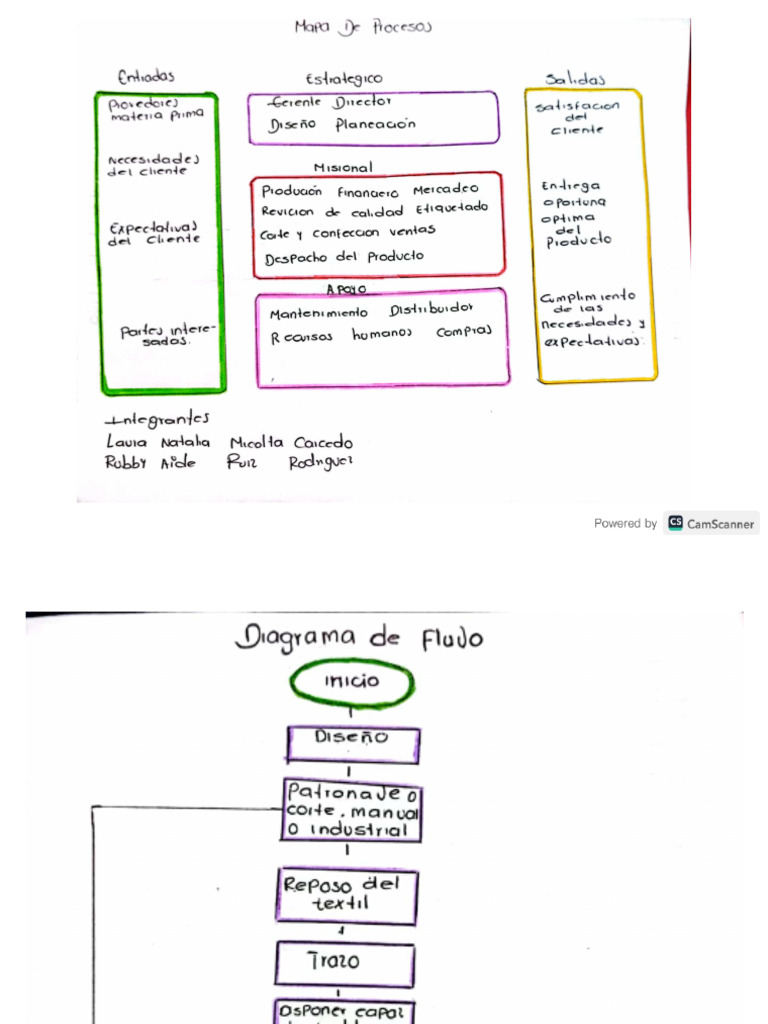 Mapa De Procesos
Entradas
Provedores
materia Prima
Necesidades
del cliente
Expectativas
del Cliente
Partes intere-
sadas.
Estrategico
Gerente Director
Diseño Planeación
Misional
Produción Financiero Mercadeo
Revicion de calidad Etiquetado
Corte y confeccion ventas
Despacho del Producto
Apoyo
Mantenimiento Distribuidor
Recursos humanos Compras
Salidas
Satisfacion
del
cliente
Entrega
oportuna
optima
del
Producto
Cumplimiento
de las
necesidades y
expectativas.
Integrantes
Laura Natalia Micolta Caicedo
Rubby Aide Ruiz Rodriguez
Powered by CS CamScanner
Diagrama de Flujo
inicio
Diseño
Patronaje o
corte, manual
o industrial
Reposo del
textil
Trazo
Disponer capas